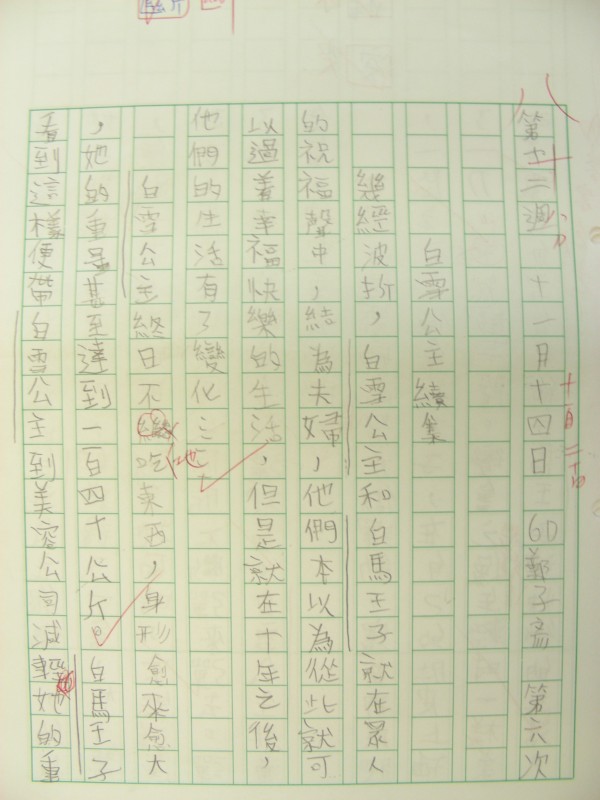 第十二週 十一月十四日 6D 鄭子 第六次
十一月二十日
白雪公主續集
幾經波折,白雪公主和白馬王子就在眾人
的祝福聲中,結為夫婦,他們本以為從此就可
以過著幸福快樂的生活,但是就在十年之後,
他們的生活有了變化…
白雪公主終日不斷地吃東西,身形愈來愈大
,她的重量甚至達到一百四十公斤。白馬王子
看到這樣便帶白雪公主到美容公司減輕她的重